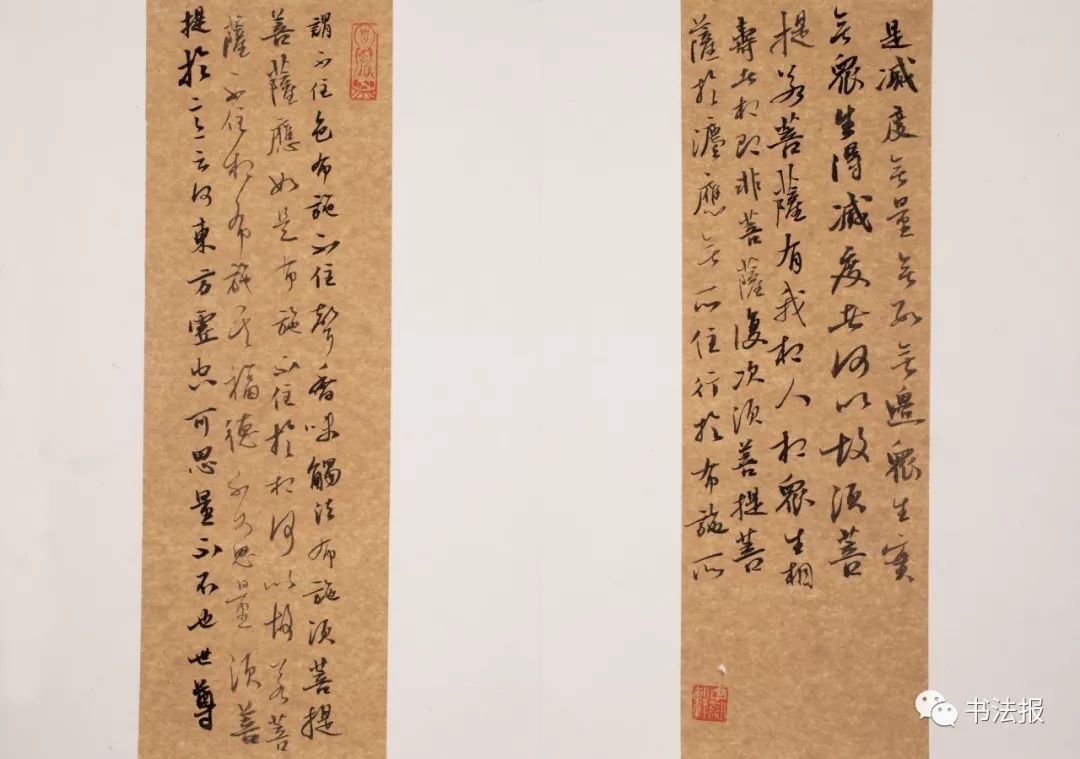 是滅度無量無數無邊眾生實
無眾生得滅度者何以故須菩
提若菩薩有我相人相眾生相
壽者相即非菩薩復次須菩提菩
薩於灋應無所住行於布施所
謂不住色布施不住聲香味觸法布施須菩提
菩薩應如是布施不住於相何以故若菩
薩不住相布施其福德不可思量須菩
提於意云何東方虛空可思量不不也世尊
书法报